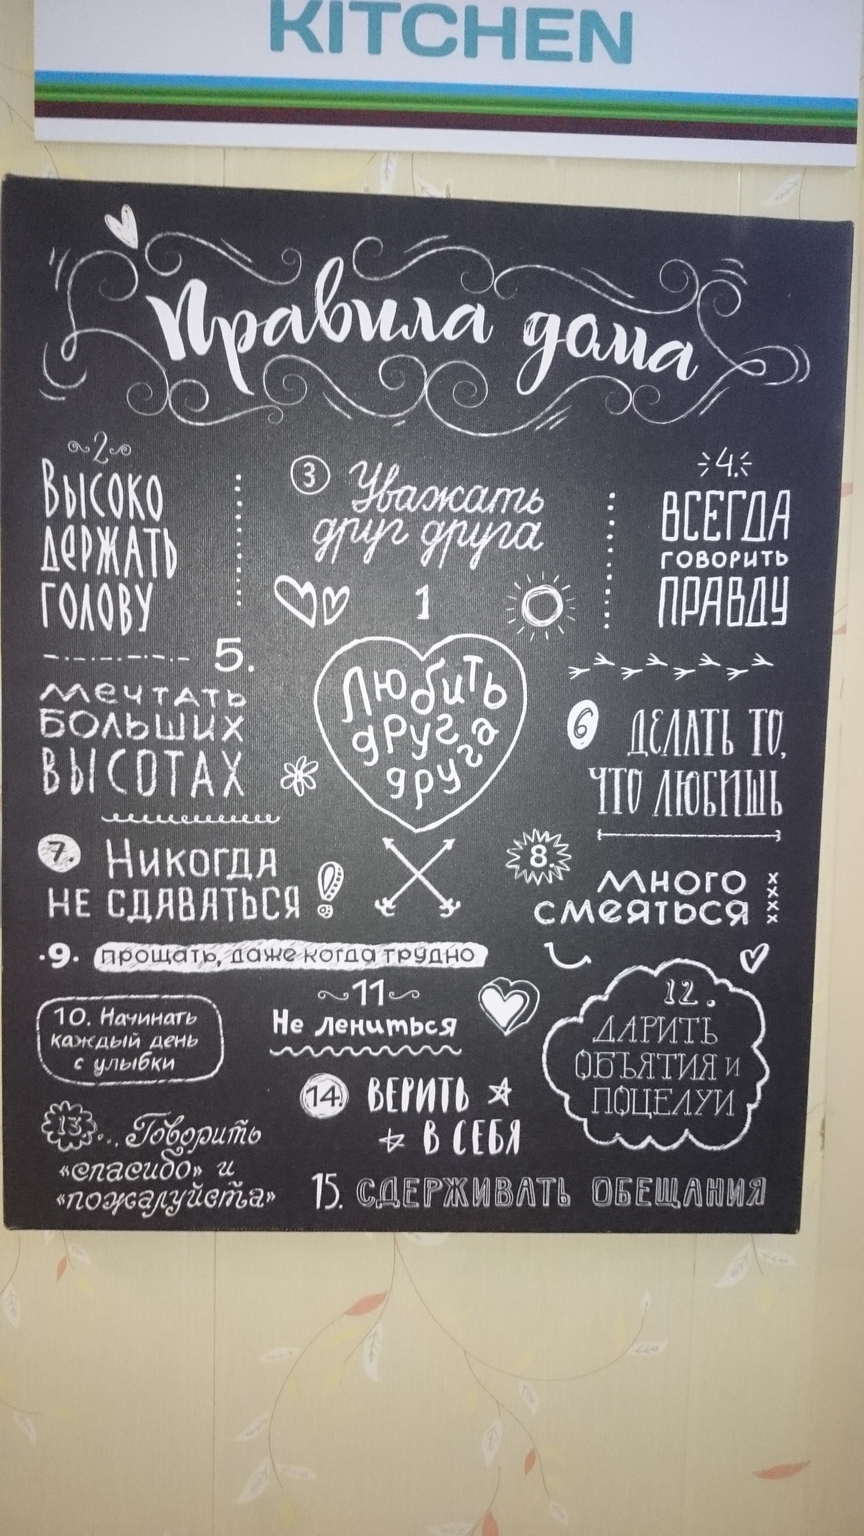 KITCHEN
Правила дома
2
Высоко
держать
голову
3 Уважать
друг друга
4.
ВСЕГДА
ГОВОРИТЬ
ПРАВДУ
1
Любить
друг
друга
5.
мечтать
больших
высотах
6 ДЕЛАТЬ ТО,
ЧТО ЛЮБИШЬ
7. Никогда
не сдаваться
8.
много
смеяться
9. прощать, даже когда трудно
10. Начинать
каждый день
с улыбки
11
Не лениться
12.
ДАРИТЬ
ОБЪЯТИЯ и
ПОЦЕЛУИ
13... Говорить
«спасибо» и
«пожалуйста»
14. ВЕРИТЬ
В СЕБЯ
15. СДЕРЖИВАТЬ ОБЕЩАНИЯ